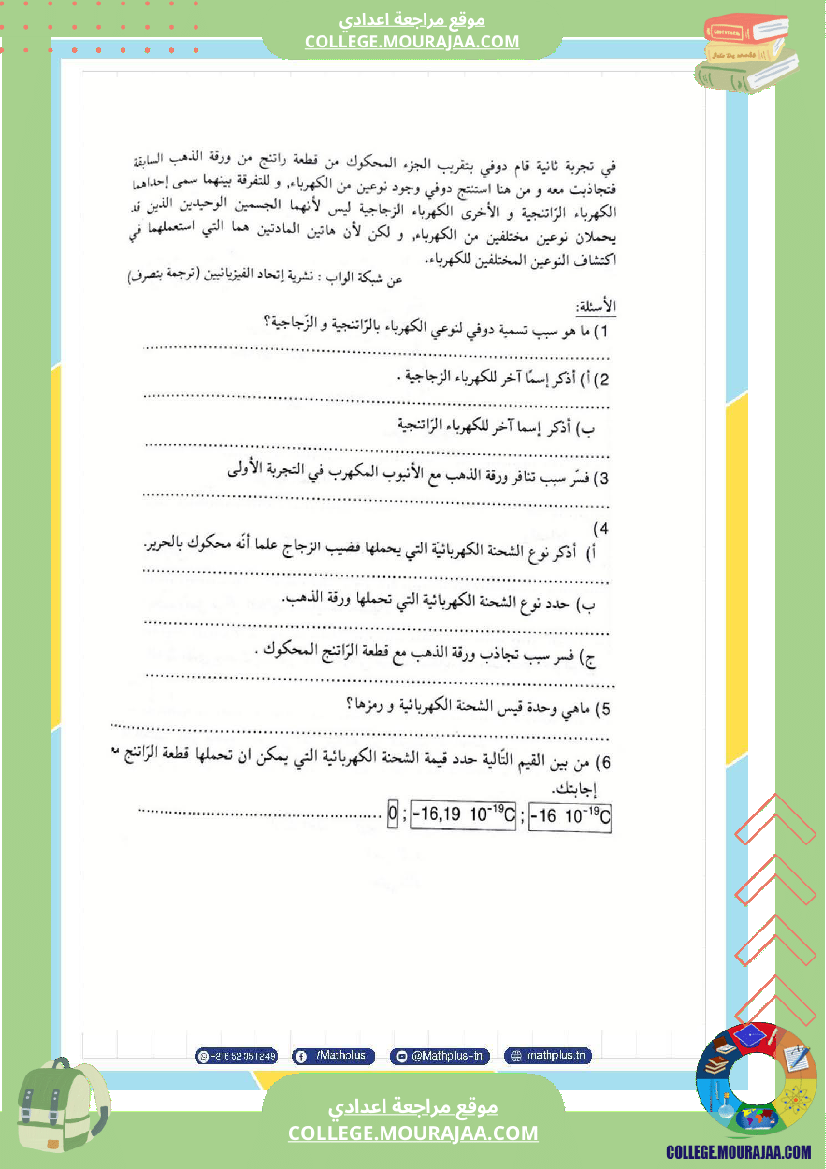 موقع مراجعة اعدادي
COLLEGE.MOURAJAA.COM
في تجربة ثانية قام دوفي بتقريب الجزء المحكوك من قطعة راتنج من ورقة الذهب السابقة
فتجاذبت معه و من هنا استنتج دوفي وجود نوعين من الكهرباء, و للتفرقة بينهما سمى إحداهما
الكهرباء الرّاتنجية و الأخرى الكهرباء الزجاجية ليس لأنهما الجسمين الوحيدين الذين قد
يحملان نوعين مختلفين من الكهرباء, و لكن لأن هاتين المادتين هما التي استعملهما في
اكتشاف النوعين المختلفين للكهرباء.
عن شبكة الواب : نشرية إتحاد الفيزيائيين (ترجمة بتصرف)
الأسئلة:
1) ما هو سبب تسمية دوفي لنوعي الكهرباء بالرّاتنجية و الزّجاجية؟
2) أ) أذكر إسمًا آخر للكهرباء الزجاجية .
ب) أذكر إسما آخر للكهرباء الرّاتنجية
3) فسّر سبب تنافر ورقة الذهب مع الأنبوب المكهرب في التجربة الأولى
4)
أ) أذكر نوع الشحنة الكهربائيّة التي يحملها قضيب الزجاج علما أنّه محكوك بالحرير.
ب) حدد نوع الشحنة الكهربائية التي تحملها ورقة الذهب.
ج) فسر سبب تجاذب ورقة الذهب مع قطعة الرّاتنج المحكوك .
5) ماهي وحدة قيس الشحنة الكهربائية و رمزها؟
6) من بين القيم التّالية حدد قيمة الشحنة الكهربائية التي يمكن ان تحملها قطعة الرّاتنج
إجابتك.
−16 10⁻¹⁹C ; −16,19 10⁻¹⁹C ; 0
/Mathplus
@Mathplus-tn
mathplus.tn
موقع مراجعة اعدادي
COLLEGE.MOURAJAA.COM
COLLEGE.MOURAJAA.COM